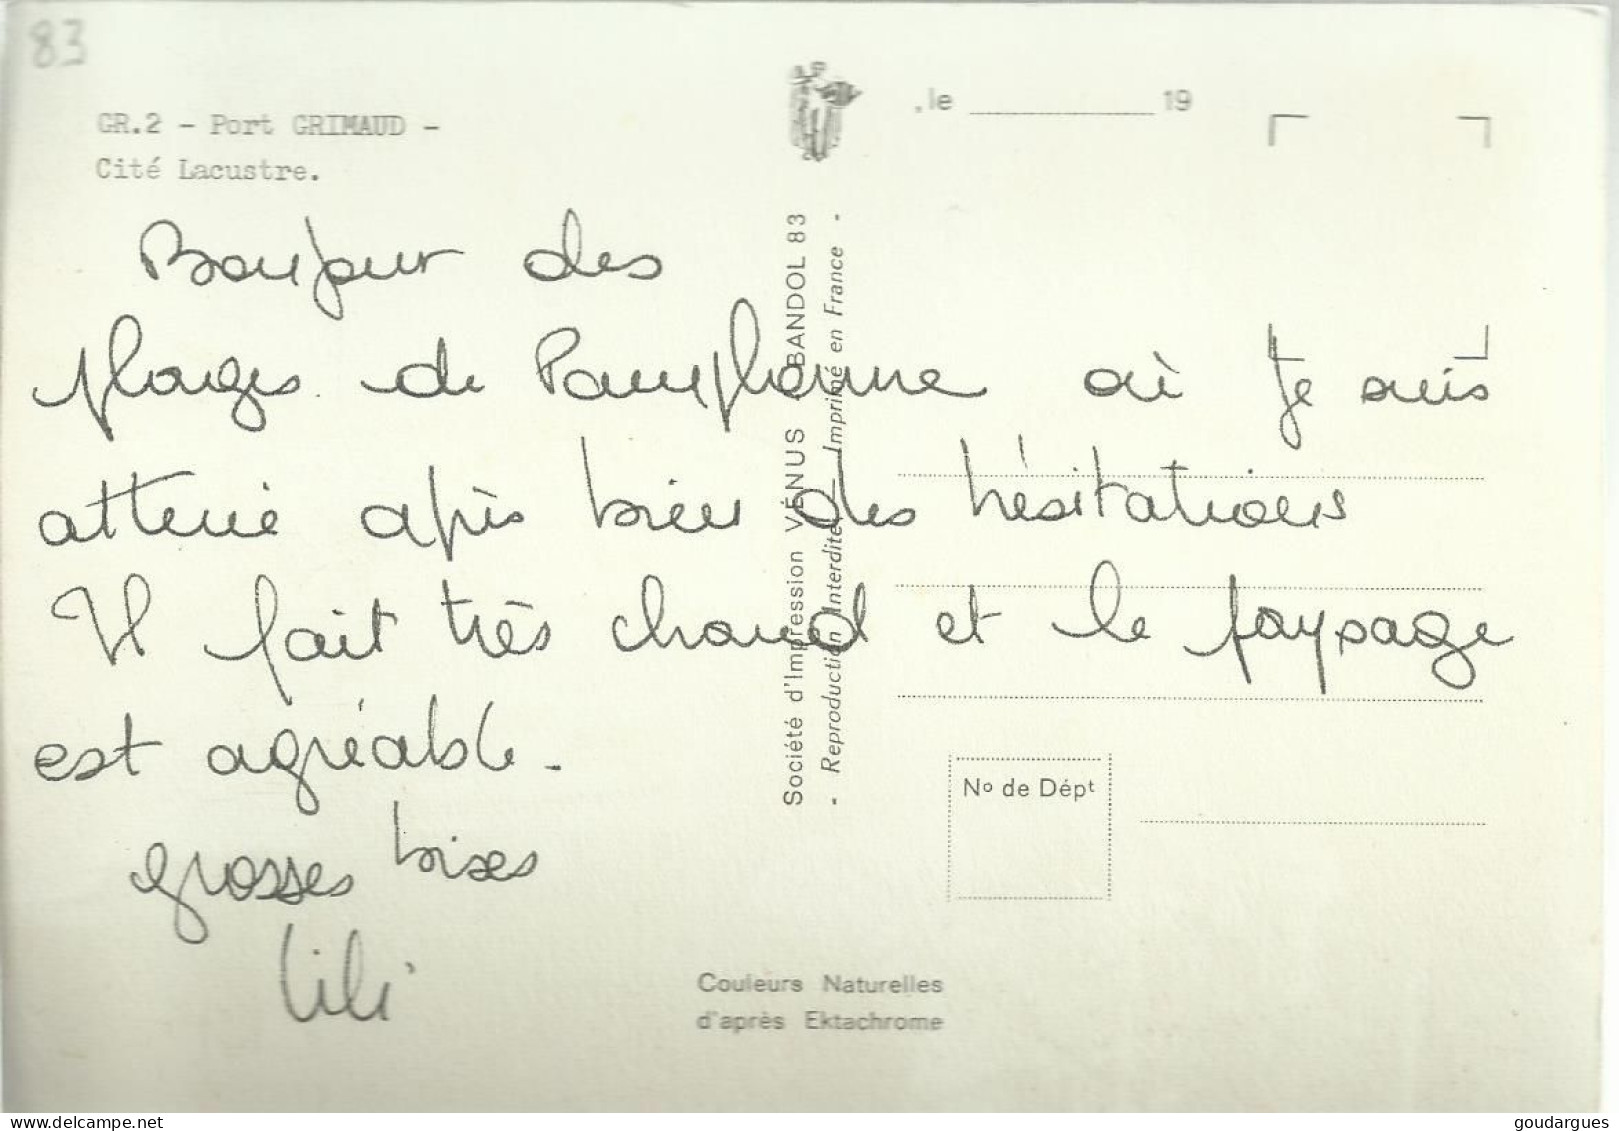 83
GR.2 - Port GRIMAUD -
Cité Lacustre.
,le 19
Bonjour des
plages de Pampelonne où Je suis
atterrie après bien des hésitations
Il fait très chaud et le paysage
est agréable.
grosses bises
Lili
Société d'Impression VÉNUS BANDOL 83
- Reproduction Interdite - Imprimé en France -
Nº de Dépt
Couleurs Naturelles
d'après Ektachrome
www.delcampe.net
goudargues